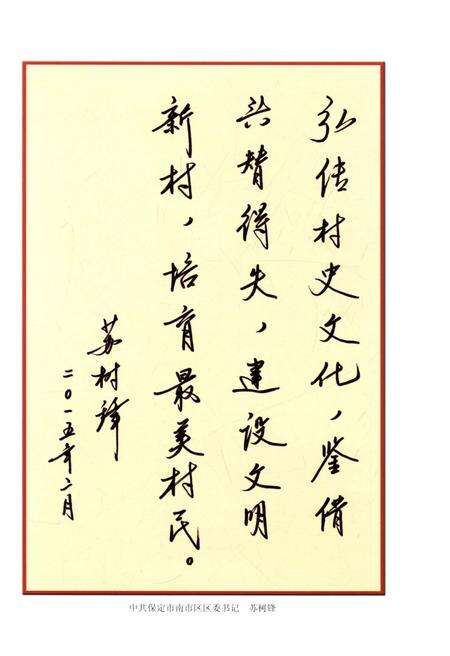 弘传村史文化，鉴借
兴替得失，建设文明
新村，培育最美村民。
苏树锋
二〇一五年二月
中共保定市南市区区委书记 苏树锋